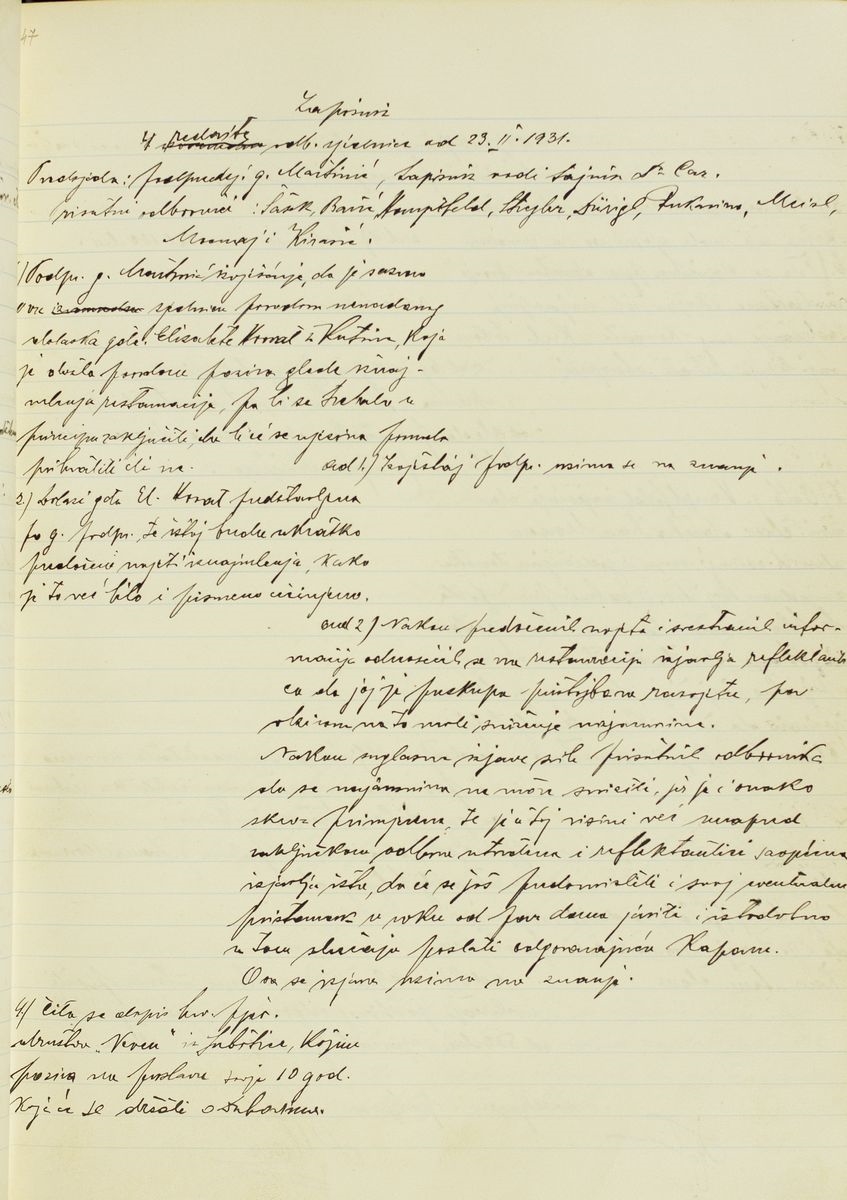 47
Zapisnik
4 redovite odb. sjednice od 23. II. 1931.
Predsjeda: podpredsj. g. Martinić, Zapisnik vodi tajnik Dr Car.
prisutni odbornici: Šask, Banić, Kumptfeld, Stiegler, Širigl, Dukarino, Meisl,
i Kirasić.
1) Podpr. g. Martinić izvješćuje, da je sazvao
ovu sjednicu povodom nenadanog
dolaska gđe. Elisabete Horvat iz Kutine, koja
je došla povodom poziva glede iznaj-
mljenja restauracije, pa bi se trebalo u
principu zaključiti, da li će se njezina ponuda
prihvatiti ili ne.
ad 1.) Izvještaj podpr. uzima se na znanje.
2.) Dolazi gđa El. Horvat predstavljena
po g. podpr. te istoj bude ukratko
predočeni uvjeti iznajmljenja, kako
je to već bilo i pismeno učinjeno.
ad 2) Nakon predočenih uvjeta i svestranih infor-
macija odnosećih se na restauraciju izjavlja reflektanti-
ca da joj je preskupa pristojba na rasvjetu, pa
obzirom na to moli sniženje najamnine.
Nakon suglasne izjave svih prisutnih odbornika
da se najamnina ne može sniziti, jer je i onako
skroz primjerena, te je u toj visini već unapred
zaključkom odbora utvrđena i reflektantici saopćena
izjavlja ista, da će se još predomisliti i svoj eventualni
pristanak u roku od par dana javiti i istodobno
u tom slučaju poslati odgovarajuću kaparu.
Ova se izjava uzima na znanje.
4) Čita se dopis hrv. pjev.
društva „Neven" iz Subotice, kojim
poziva na proslavu svoje 10 god.
koja će se držati o Duhovima.